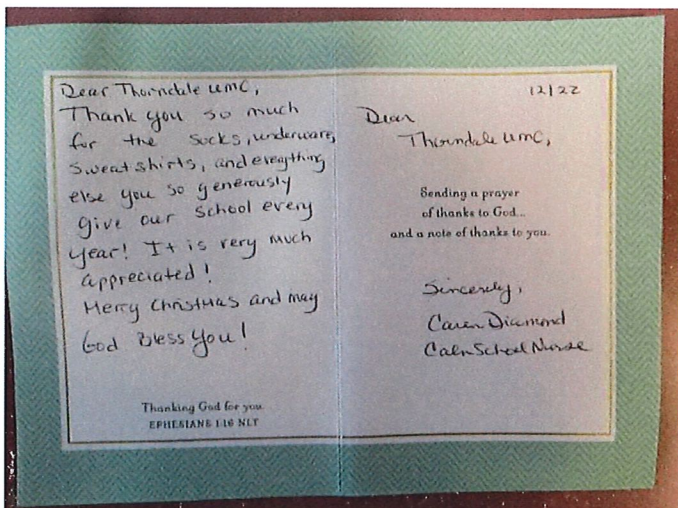 Dear Thorndale UMC,
Thank you so much
for the socks, underware,
sweatshirts, and everything
else you so generously
give our school every
year! It is very much
appreciated!
Merry Christmas and may
God Bless You!
Thanking God for you.
EPHESIANS 1:16 NLT
12/22
Dear
Thorndale UMC,
Sending a prayer
of thanks to God...
and a note of thanks to you.
Sincerely,
Caren Diamond
Caln School Nurse